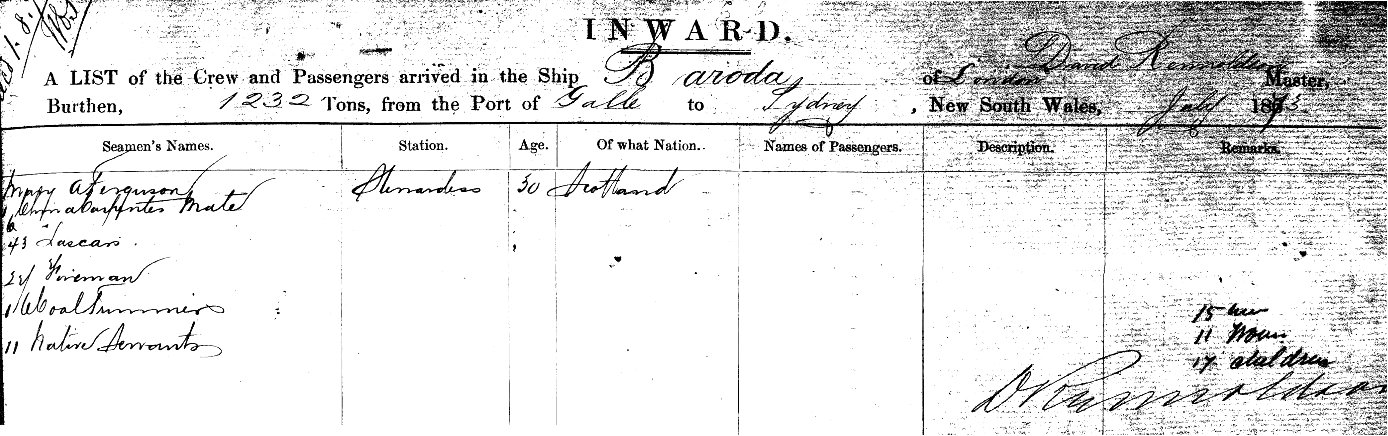 INWARD.
A LIST of the Crew and Passengers arrived in the Ship Baroda, of London David Rennoldson Master,
Burthen, 1232 Tons, from the Port of Galle to Sydney, New South Wales, July 1873
Seamen's Names. Station. Age. Of what Nation. Names of Passengers. Description. Remarks.
Mary A Ferguson Stewardess 30 Scotland
1 China Carpenters Mate
43 Lascars
Fireman
Coal Trimmers
15
11 Native Servants 11
17 Children
D Rennoldson